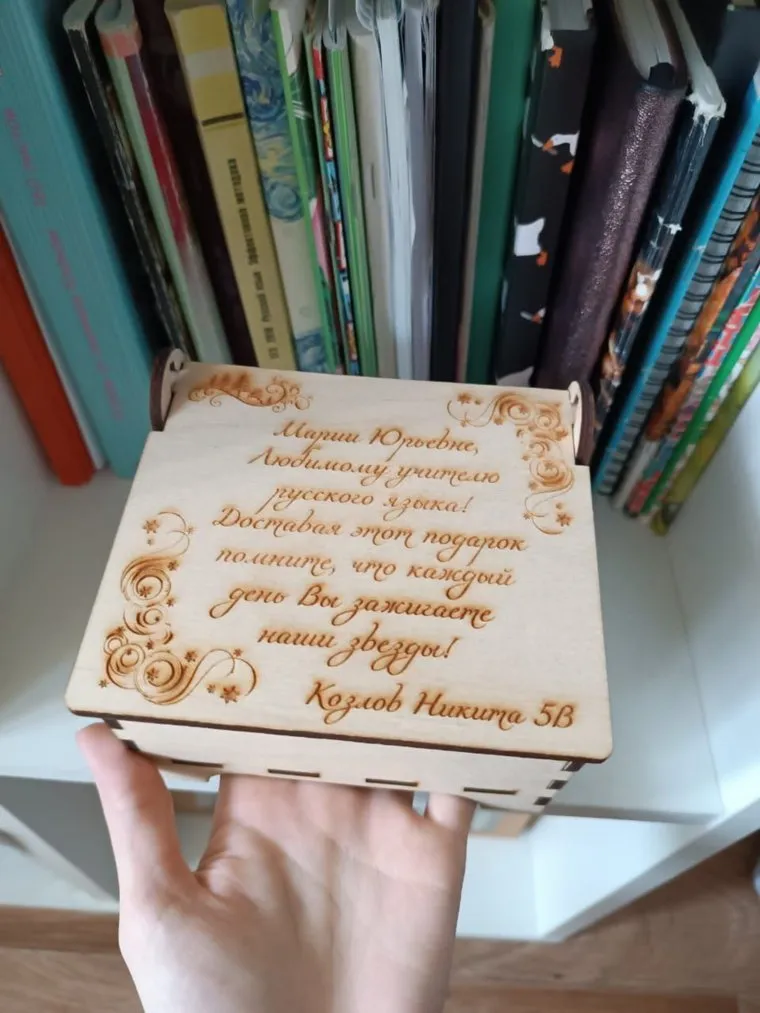 Марии Юрьевне,
Любимому учителю
русского языка!
Доставая этот подарок
помните, что каждый
день Вы зажигаете
наши звезды!
Козлов Никита 5В